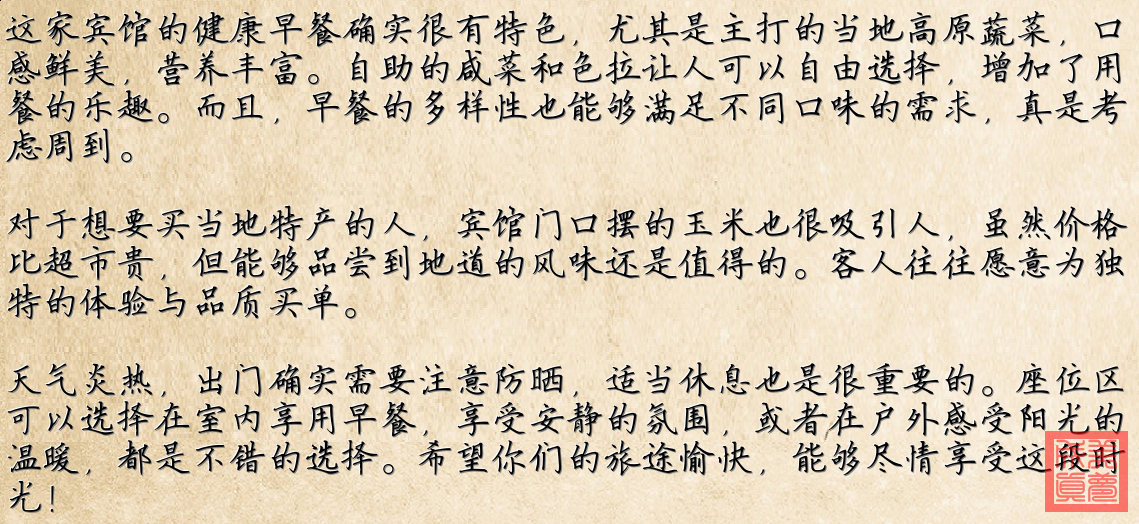 这家宾馆的健康早餐确实很有特色，尤其是主打的当地高原蔬菜，口
感鲜美，营养丰富。自助的咸菜和色拉让人可以自由选择，增加了用
餐的乐趣。而且，早餐的多样性也能够满足不同口味的需求，真是考
虑周到。
对于想要买当地特产的人，宾馆门口摆的玉米也很吸引人，虽然价格
比超市贵，但能够品尝到地道的风味还是值得的。客人往往愿意为独
特的体验与品质买单。
天气炎热，出门确实需要注意防晒，适当休息也是很重要的。座位区
可以选择在室内享用早餐，享受安静的氛围，或者在户外感受阳光的
温暖，都是不错的选择。希望你们的旅途愉快，能够尽情享受这段时
光！